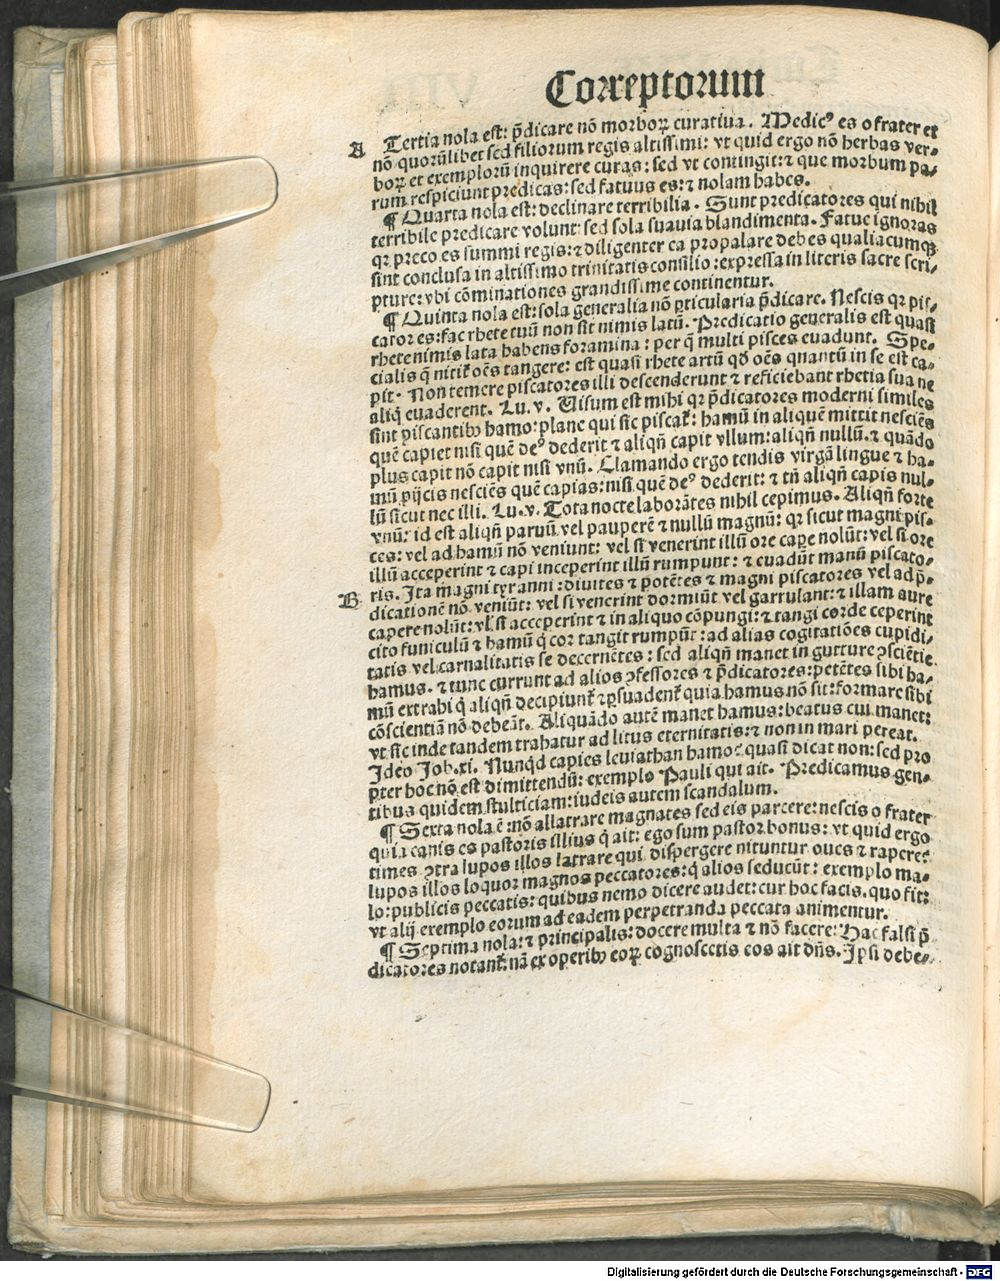 Correptorum
A Tertia nola est: p̄dicare nō morboꝝ curatiua. Medicꝰ es o frater et
nō quorūlibet sed filiorum regis altissimi: vt quid ergo nō herbas ver-
boꝝ et exemplorū inquirere curas: sed vt contingit: ⁊ que morbum pa-
rum respiciunt predicas: sed fatuus es: ⁊ nolam habes.
¶ Quarta nola est: declinare terribilia. Sunt predicatores qui nihil
terribile predicare volunt: sed sola suauia blandimenta. Fatue ignoras
qꝛ preco es summi regis: ⁊ diligenter ea propalare debes qualiacumqꝫ
sint conclusa in altissimo trinitatis consilio: expressa in literis sacre scri-
pture: vbi cōminationes grandissime continentur.
¶ Quinta nola est: sola generalia nō ꝑticularia p̄dicare. Nescis qꝛ pis-
cator es: fac rhete tuū non sit nimis latū. Predicatio generalis est quasi
rhete nimis lata habens foramina: per q̄ multi pisces euadunt. Spe-
cialis q̄ nitit᷑ oēs tangere: est quasi rhete artū qd̄ oēs quantū in se est ca-
pit. Non temere piscatores illi descenderunt ⁊ reficiebant rhetia sua ne
aliq̇ euaderent. Lu. v. Uisum est mihi qꝛ p̄dicatores moderni similes
sint piscantibꝰ hamo: plane qui sic piscat᷑: hamū in aliquē mittit nesciēs
quē capiet nisi quē deꝰ dederit ⁊ aliqn̄ capit vllum: aliqn̄ nullū. ⁊ quādo
plus capit nō capit nisi vnū. Clamando ergo tendis virgā lingue ⁊ ha-
mū ꝓijcis nesciēs quē capias: nisi quē deꝰ dederit: ⁊ tn̄ aliqn̄ capis nul-
lū sicut nec illi. Lu. v. Tota nocte laborātes nihil cepimus. Aliqn̄ forte
vnū: id est aliqn̄ paruū vel pauperē ⁊ nullū magnū: qꝛ sicut magni pis-
ces: vel ad hamū nō veniunt: vel si venerint illū ore cape nolūt: vel si ore
illū acceperint ⁊ capi inceperint illū rumpunt: ⁊ euadūt manū piscato-
B ris. Ita magni tyranni: diuites ⁊ potētes ⁊ magni piscatores vel ad p̄-
dicationē nō veniūt: vel si venerint dormiūt vel garrulant: ⁊ illam aure
capere nolūt: vl̓ si acceperint ⁊ in aliquo cōpungi: ⁊ tangi corde ceperint
cito funiculū ⁊ hamū q̇ cor tangit rumpūt: ad alias cogitatiōes cupidi-
tatis vel carnalitatis se decernētes: sed aliqn̄ manet in gutture ꝯsciētie
hamus. ⁊ tunc currunt ad alios ꝯfessores ⁊ p̄dicatores: petētes sibi ha-
mū extrahi q̇ aliqn̄ decipiunt᷑ ⁊ ꝑsuadent᷑ quia hamus nō sit: formare sibi
cōscientiā nō debeāt. Aliquādo autē manet hamus: beatus cui manet:
vt sic inde tandem trahatur ad litus eternitatis: ⁊ non in mari pereat.
Ideo Job. xi. Nunqd̓ capies leuiathan hamo: quasi dicat non: sed pro
pter hoc nō est dimittendū: exemplo Pauli qui ait. Predicamus gen-
tibus quidem stulticiam: iudeis autem scandalum.
¶ Sexta nola ē: nō allatrare magnates sed eis parcere: nescis o frater
quia canis es pastoris illius q̇ ait: ego sum pastor bonus: vt quid ergo
times ꝯtra lupos illos latrare qui dispergere nituntur oues ⁊ rapere:
lupos illos loquor magnos peccatores: q̇ alios seducūt: exemplo ma-
lo: publicis peccatis: quibus nemo dicere audet: cur hoc facis. quo fit:
vt alij exemplo eorum ad eadem perpetranda peccata animentur.
¶ Septima nola: ⁊ principalis: docere multa ⁊ nō facere: Hac falsi p̄
dicatores notant᷑. nā ex operibꝰ eoꝝ cognoscetis eos ait dn̄s. Ipsi debe-
Digitalisierung gefördert durch die Deutsche Forschungsgemeinschaft - DFG